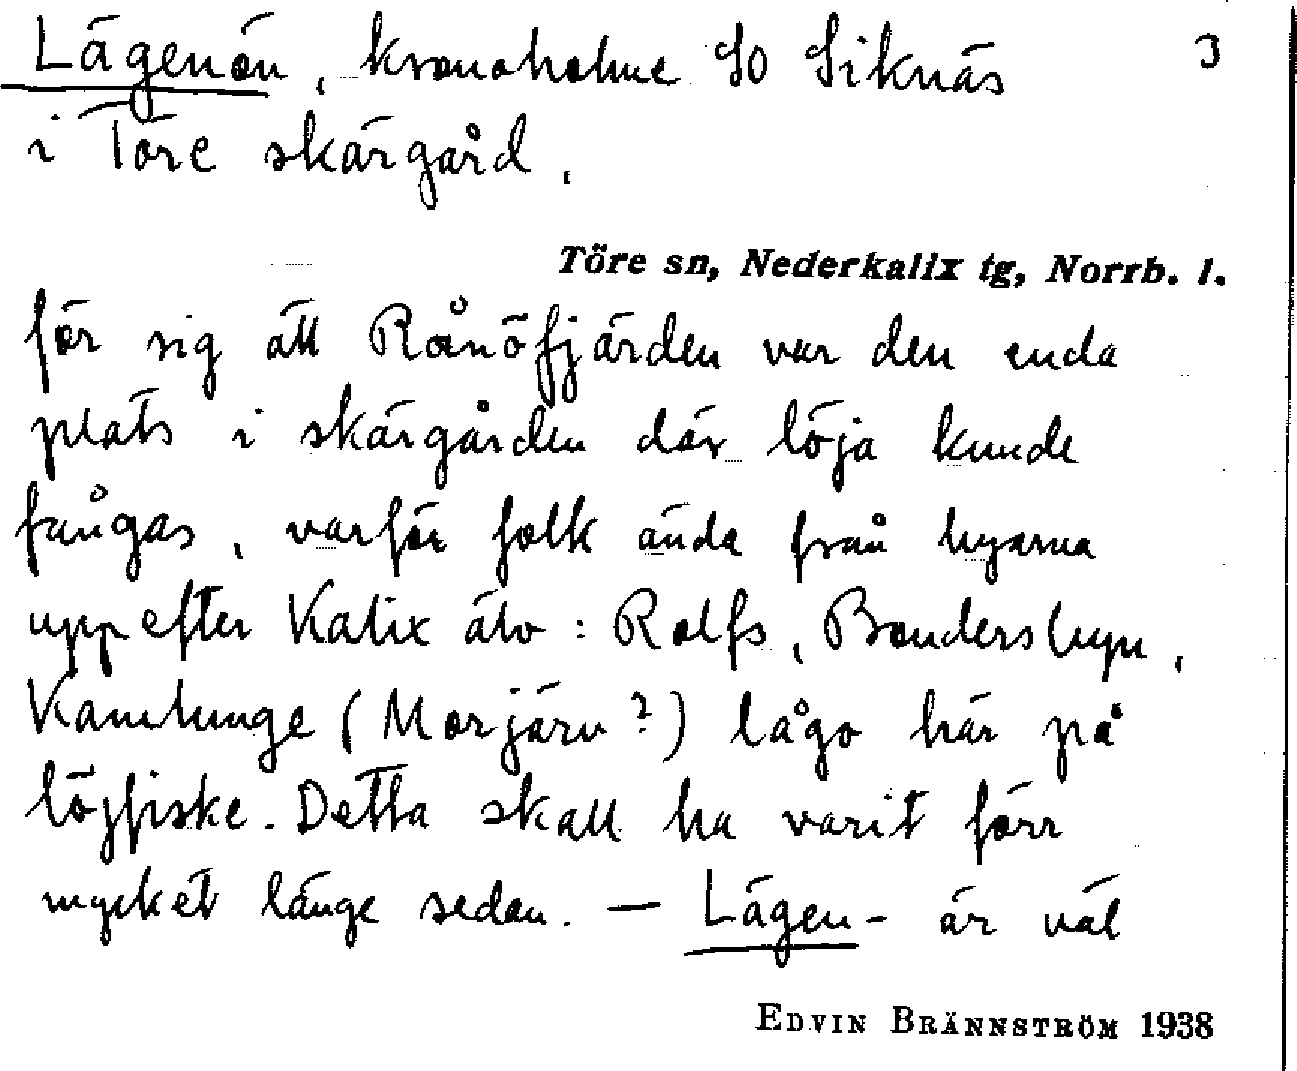 Lägenön, kronoholme SO Siknäs 3
i Töre skärgård.
Töre sn, Nederkalix tg, Norrb. l.
för sig att Rånöfjärden var den enda
plats i skärgården där löja kunde
fångas, varför folk ända från byarna
uppefter Kalix älv: Rolfs, Bondersbyn,
Kamlunge (Morjärv?) lågo här på
löjfiske. Detta skall ha varit förr
mycket länge sedan. — Lägen- är väl
EDVIN BRÄNNSTRÖM 1938